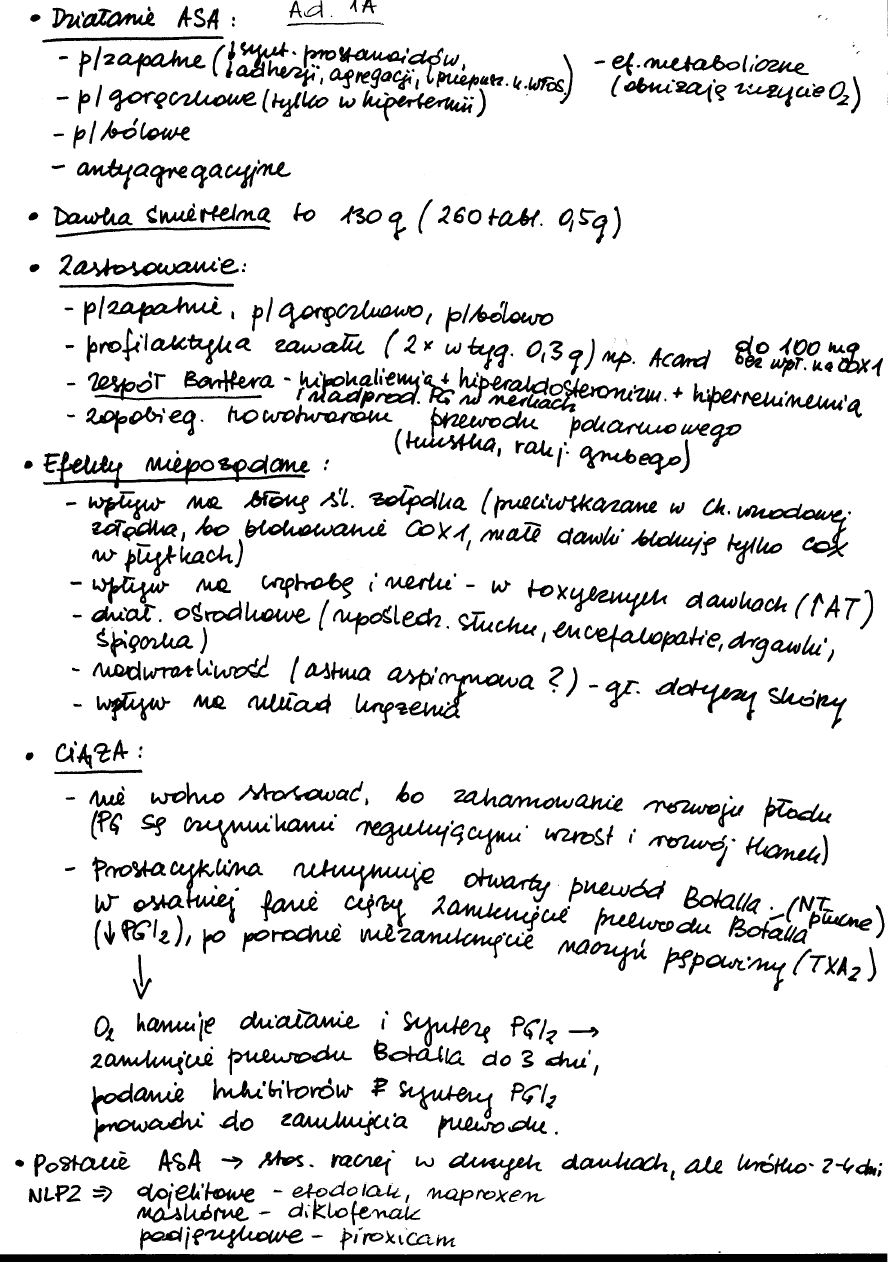 Ad. 1A
• Działanie ASA:
- p/zapalne (↓synt. prostanoidów,
↓adhezji, agregacji, ↓przepuszc. n. włos.)
- ef. metaboliczne
(obniżają zużycie O₂)
- p/gorączkowe (tylko w hipertermii)
- p/bólowe
- antyagregacyjne
• Dawka śmiertelna to 130 g (260 tabl. 0,5g)
• Zastosowanie:
- p/zapalnie, p/gorączkowo, p/bólowo
- profilaktyka zawału (2x w tyg. 0,3 g) np. Acard do 100 mg
bez wpł. na COX1
- zespół Barttera - hipokaliemia + hiperaldosteronizm. + hiperreninemia
i nadprod. PG w nerkach
- zapobieg. nowotworom przewodu pokarmowego
(trzustka, rak j. grubego)
• Efekty niepożądane:
- wpływ na błonę śl. żołądka (przeciwskazane w ch. wrzodowej
żołądka, bo blokowanie COX1, małe dawki blokują tylko COX
w płytkach)
- wpływ na wątrobę i nerki - w toxycznych dawkach (↑AT)
- dział. ośrodkowe (upośledz. słuchu, encefalopatie, drgawki,
śpiączka)
- nadwrażliwość (astma aspirynowa?) - gł. dotyczy skóry
- wpływ na układ krążenia
• CIĄŻA:
- nie wolno stosować, bo zahamowanie rozwoju płodu
(PG są czynnikami regulującymi wzrost i rozwój tkanek)
- Prostacyklina utrzymuje otwarty przewód Botalla.
W ostatniej fazie ciąży zamknięcie przewodu Botalla - (NT płucne)
(↓PGI₂), po porodzie niezamknięcie naczyń pępowiny (TXA₂)
↓
O₂ hamuje działanie i syntezę PGI₂ →
zamknięcie przewodu Botalla do 3 dni,
podanie inhibitorów syntezy PGI₂
prowadzi do zamknięcia przewodu.
• Postacie ASA → stos. raczej w dużych dawkach, ale krótko - 2-4 dni
NLPZ ⇒ dojelitowe - etodolak, naproxen
naskórne - diklofenak
podjęzykowe - piroxicam